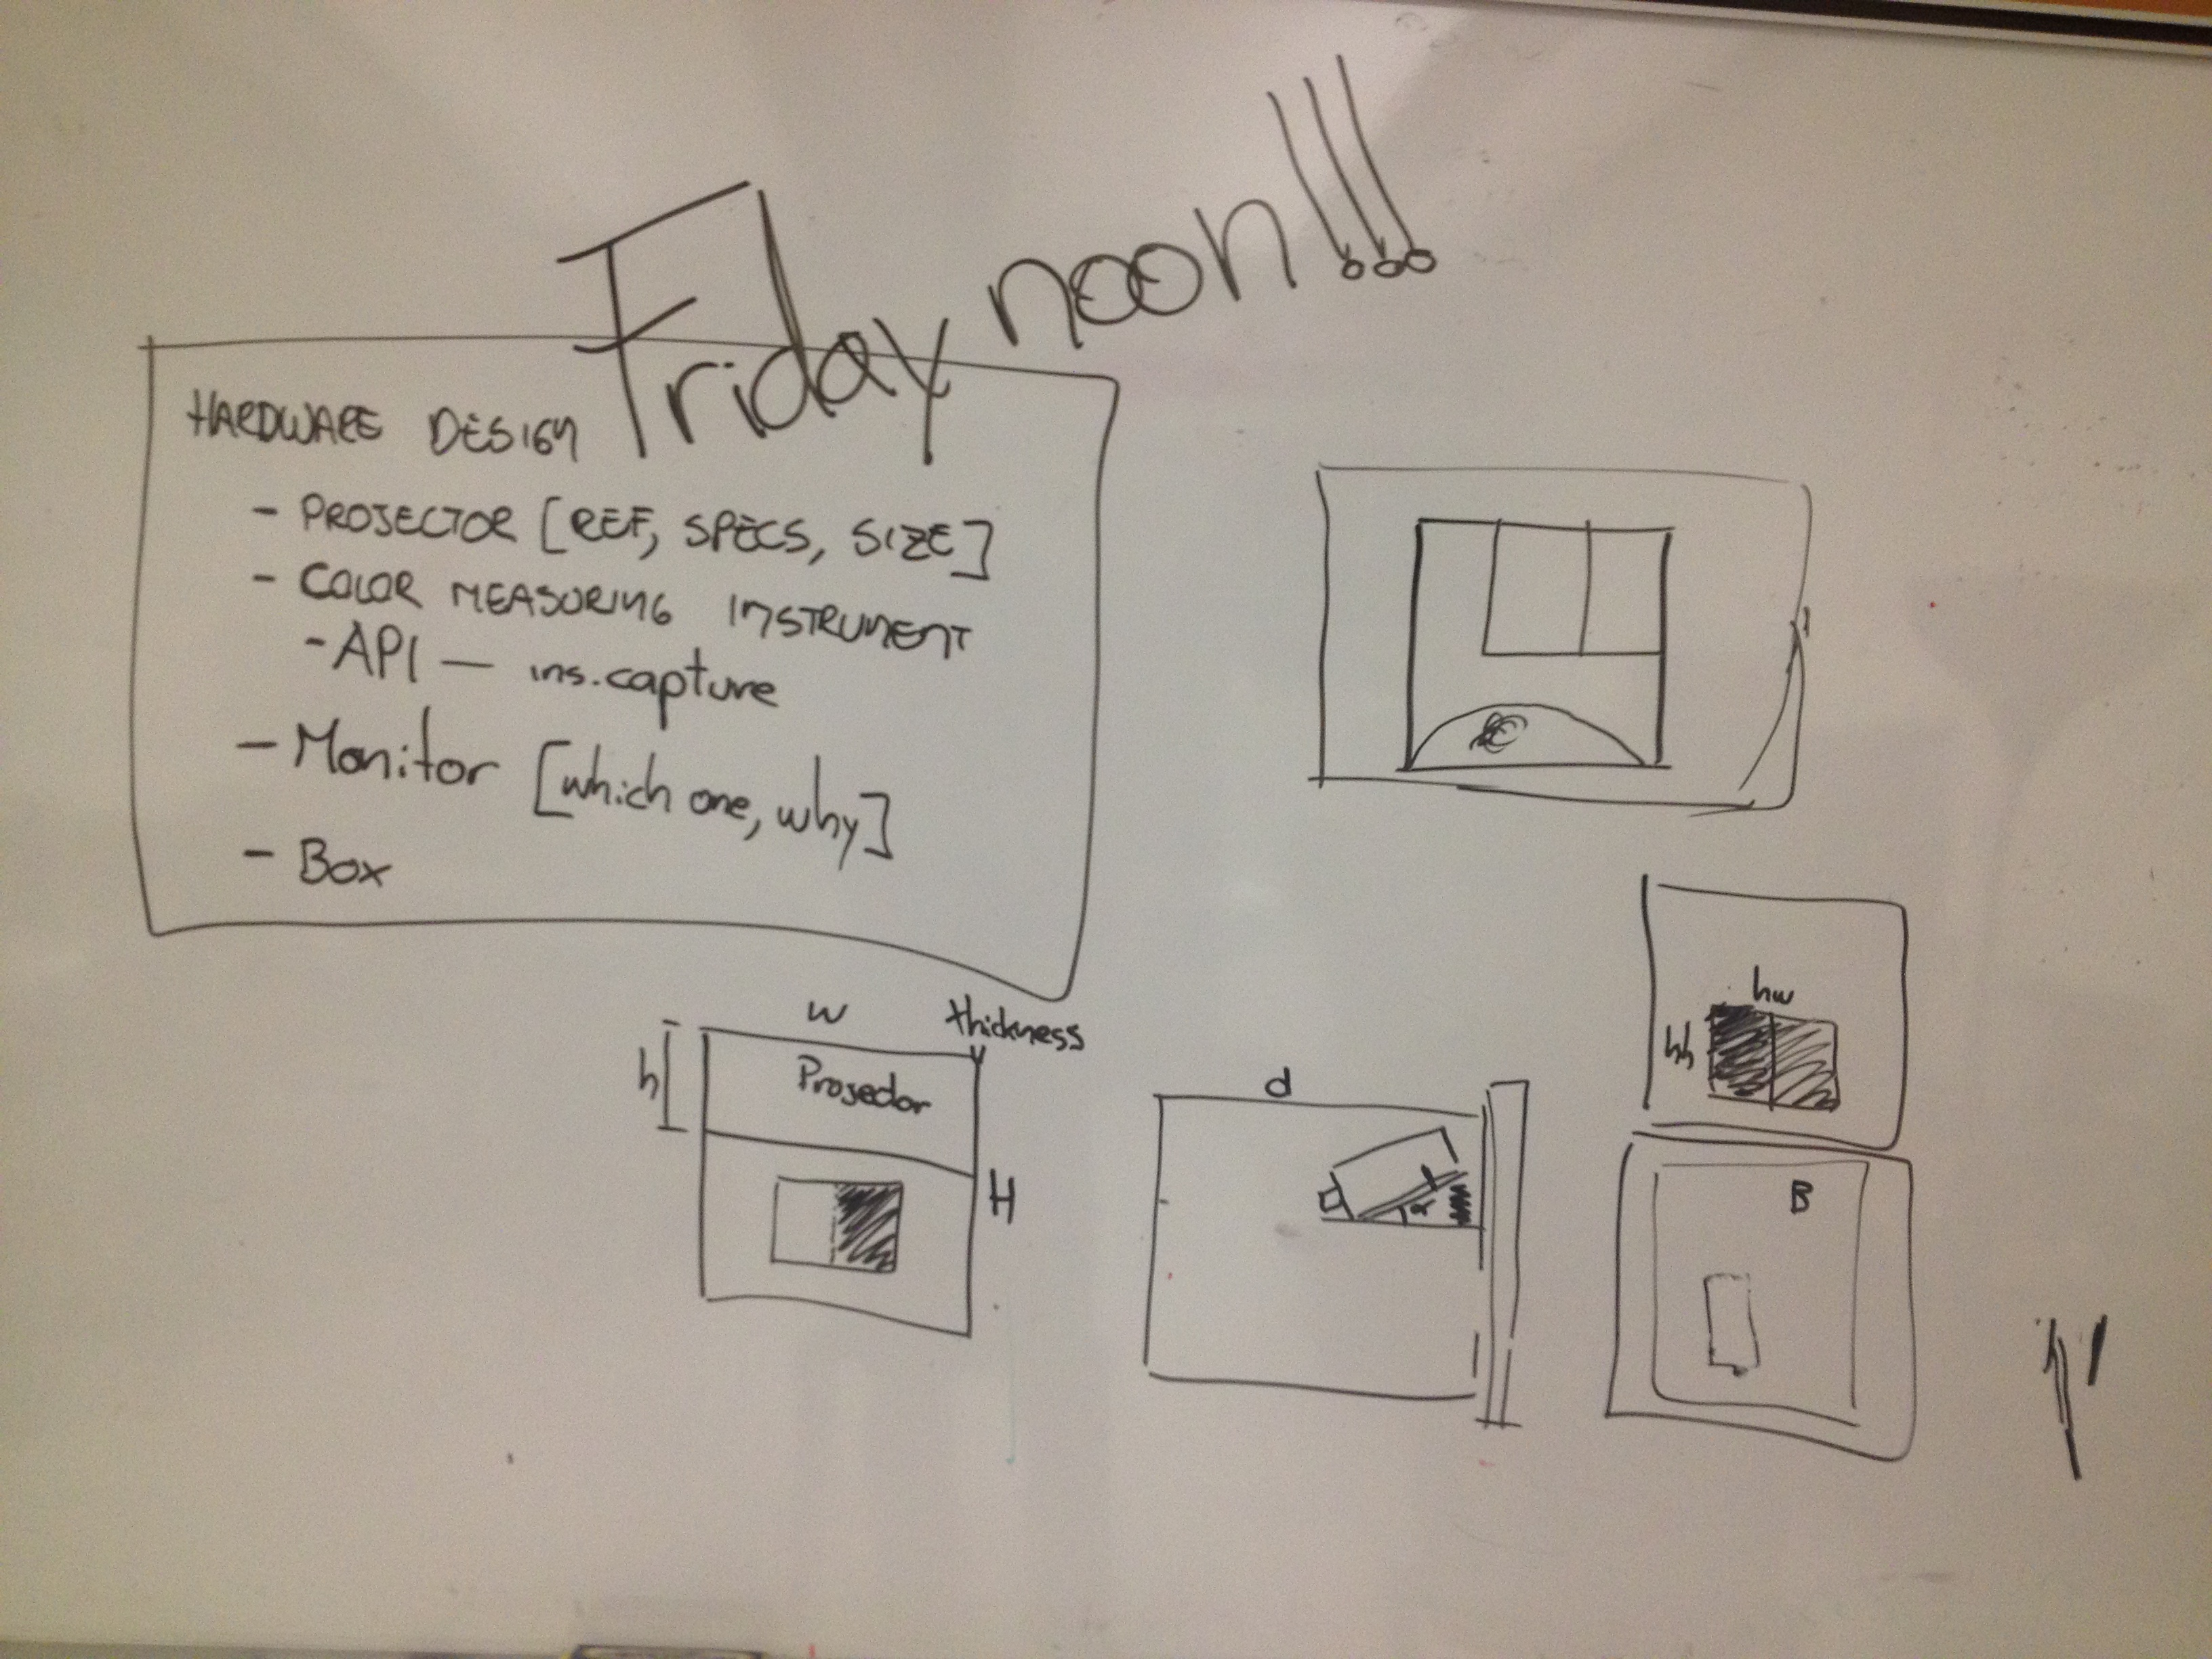 Friday noon!!!
HARDWARE DESIGN
- PROJECTOR [REF, SPECS, SIZE]
- COLOR MEASURING INSTRUMENT
- API — ins.capture
- Monitor [which one, why]
- Box
w
thickness
h
Projector
H
d
α
hw
hh
B